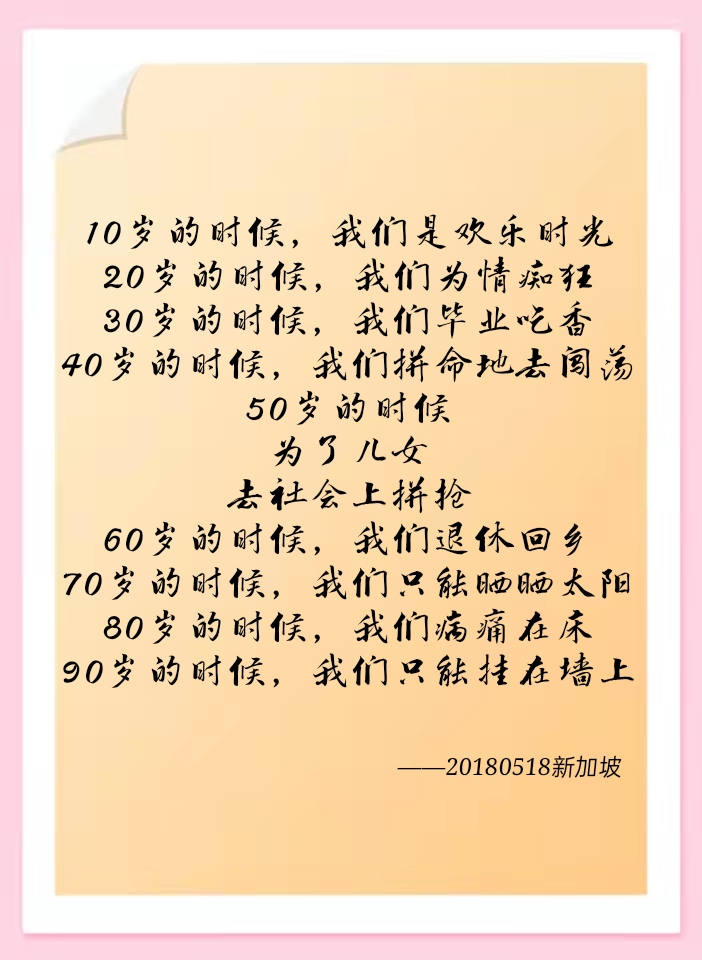 10岁的时候，我们是欢乐时光
20岁的时候，我们为情痴狂
30岁的时候，我们毕业吃香
40岁的时候，我们拼命地去闯荡
50岁的时候
为了儿女
去社会上拼抢
60岁的时候，我们退休回乡
70岁的时候，我们只能晒晒太阳
80岁的时候，我们病痛在床
90岁的时候，我们只能挂在墙上
——20180518新加坡